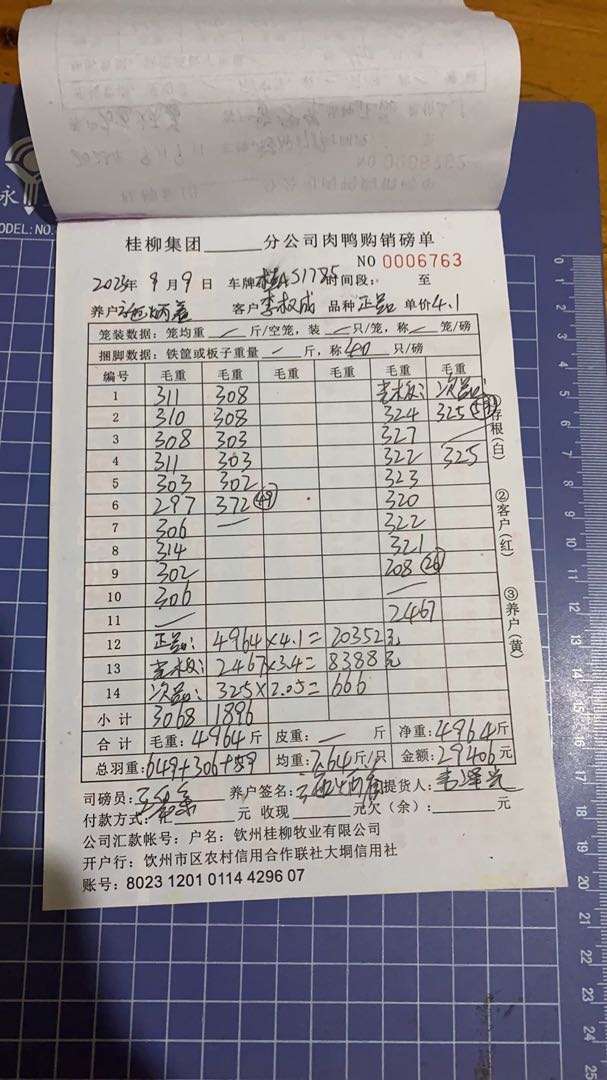 永
MODEL:NO.
桂柳集团______分公司肉鸭购销磅单
NO 0006763
2023年 9 月 9 日 车牌桂AS1785 时间段: 至
养户 客户李权成 品种正品 单价4.1
笼装数据: 笼均重 — 斤/空笼, 装 — 只/笼, 称 — 笼/磅
捆脚数据: 铁筐或板子重量 — 斤, 称 40 只/磅
编号 毛重 毛重 毛重 毛重 毛重 毛重
1 311 308 毛板: 次品:
2 310 308 324 325
3 308 303 327 —
4 311 303 322 325
5 303 302 323
6 297 372 (49) 320
7 306 — 322
8 314 321
9 302 208 (26)
10 306 —
11 — 2467
12 正品: 4964×4.1= 20352元
13 毛板: 2467×3.4= 8388元
14 次品: 325×2.05= 666
小计 3068 1896
合计 毛重: 4964斤 皮重: — 斤 净重: 4964斤
总羽重: 649+306+ 均重: 7.64斤/只 金额: 29406元
司磅员: 养户签名: 提货人:
付款方式: 元 收现 元欠(余): 元
公司汇款帐号: 户名: 钦州桂柳牧业有限公司
开户行: 钦州市区农村信用合作联社大垌信用社
账号: 8023 1201 0114 4296 07
①存根(白)
②客户(红)
③养户(黄)
0
1
2
3
4
5
6
7
8
9
10
11
12
13
14
15
16
17
18
19
20
21
22
23
24
25